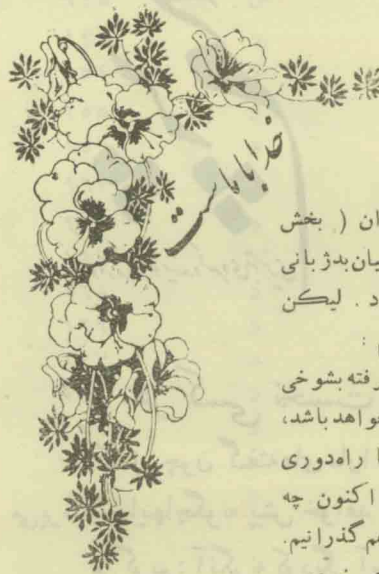 خدا با ماست
ان ( بخش
یان بدژبانی
د . لیکن
:
فته بشوخی
واهد باشد،
ا راه دوری
اکنون چه
هم گذرانیم.